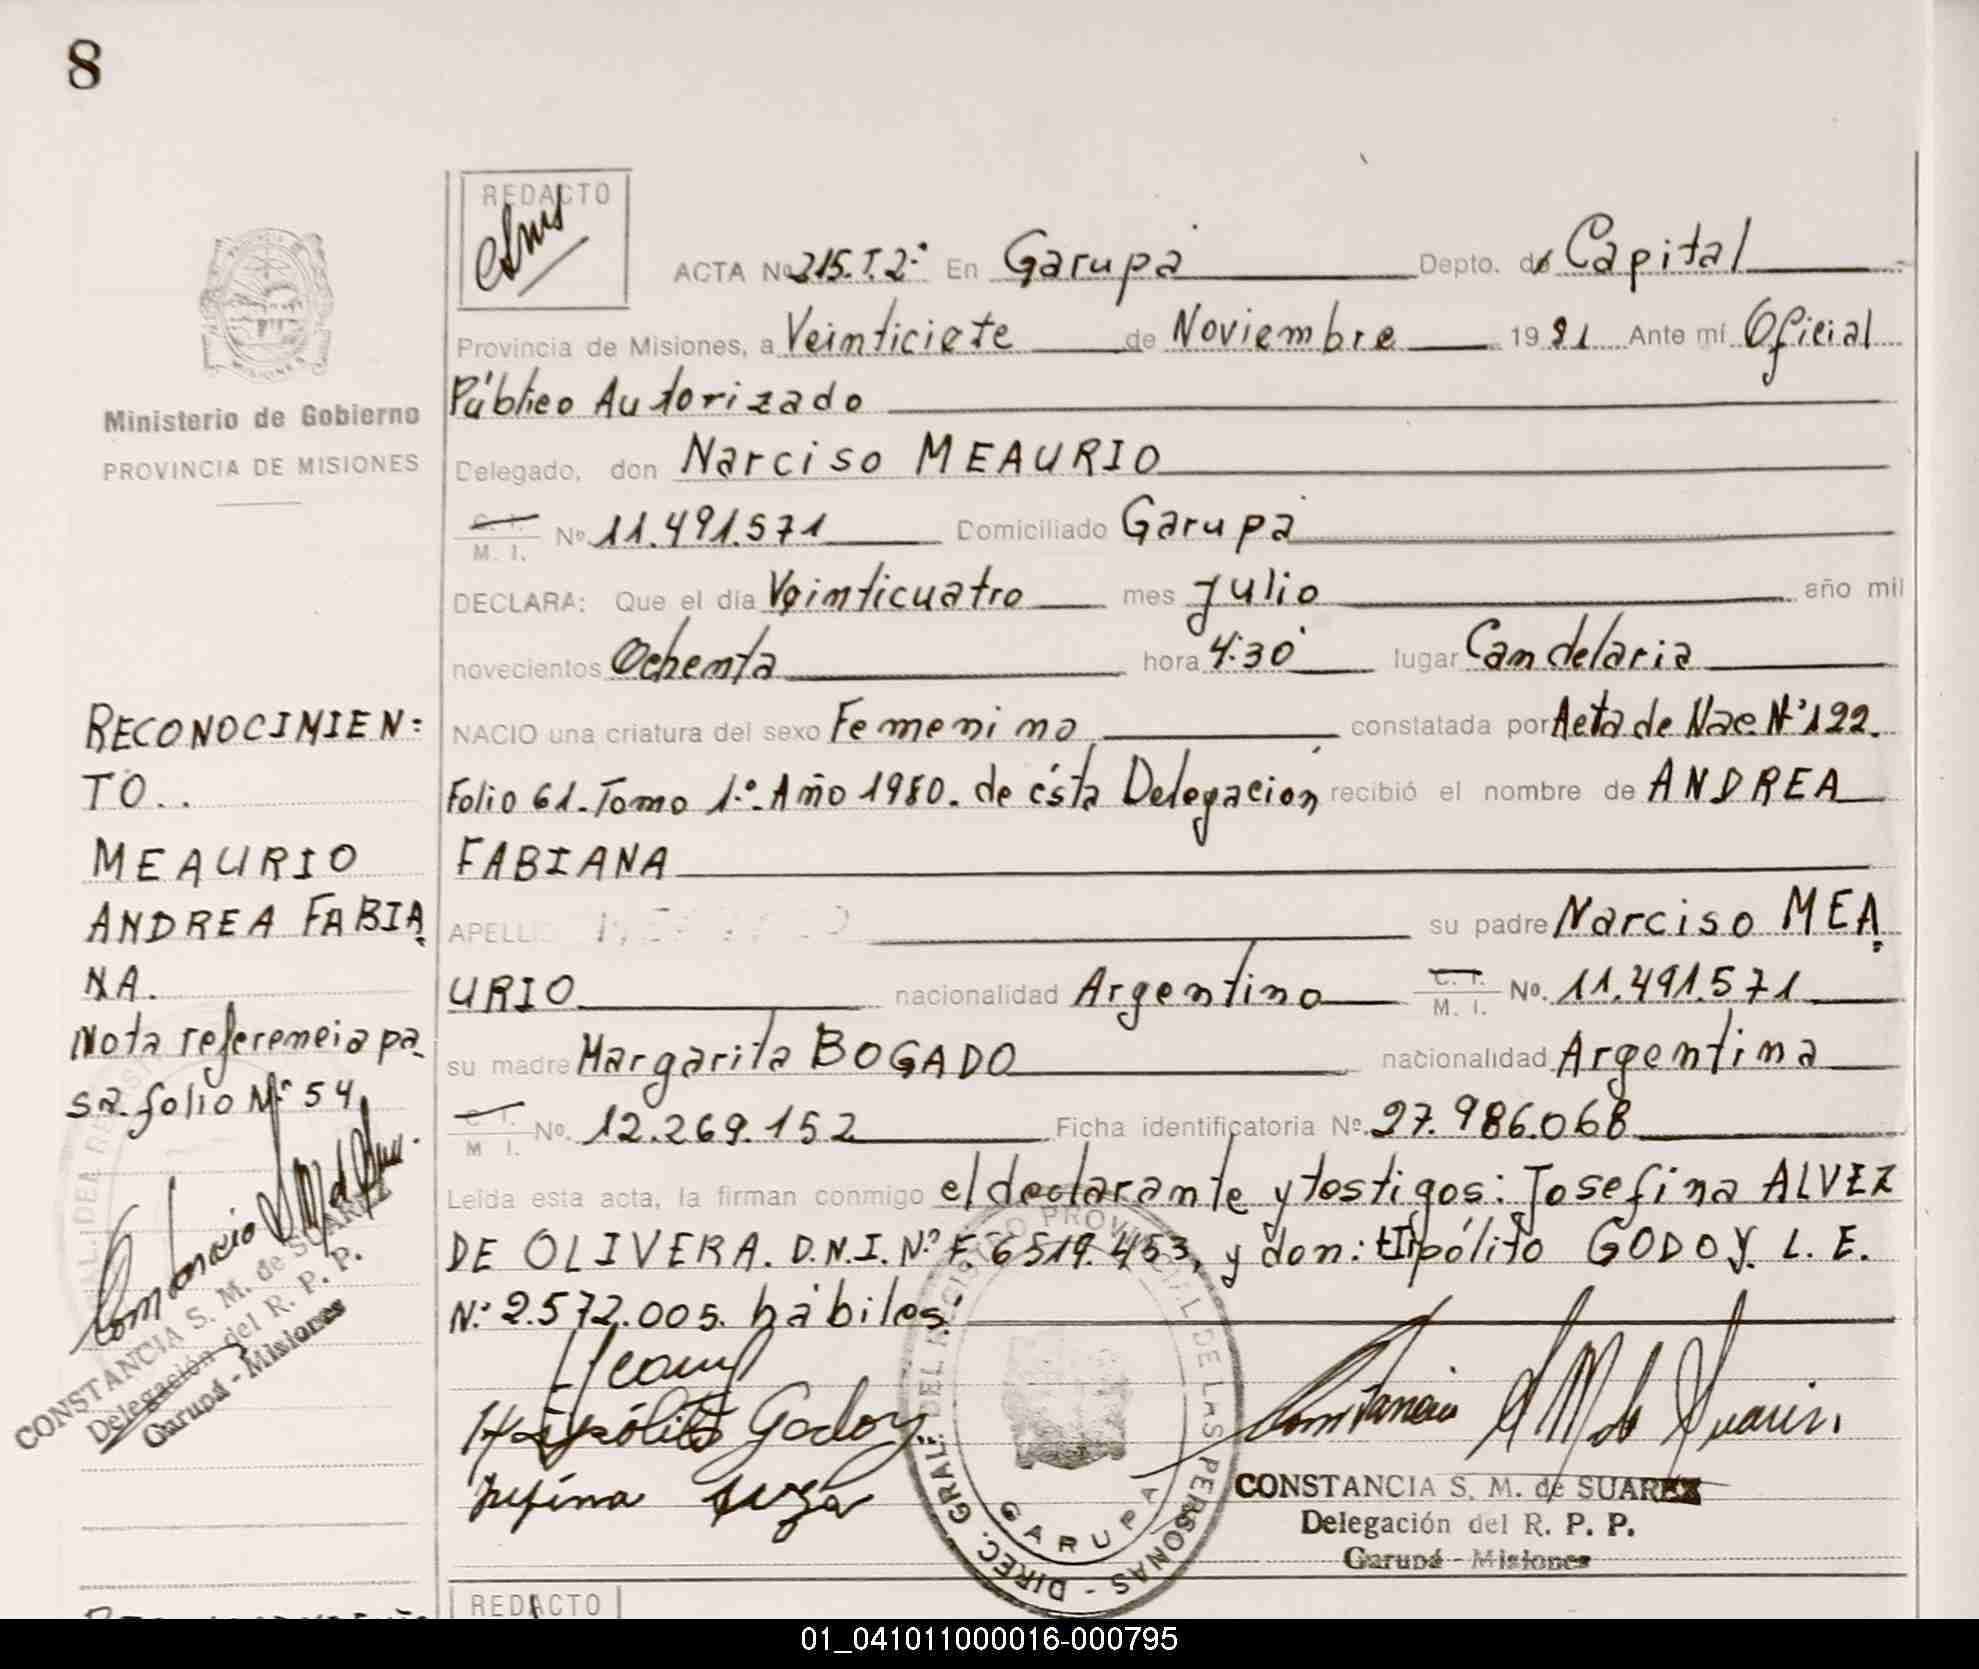 8
REDACTO
ACTA Nº 215.T.2º En Garupá Depto. de Capital
Provincia de Misiones, a Veinticiete de Noviembre 1981 Ante mí Oficial
Público Autorizado
Ministerio de Gobierno
PROVINCIA DE MISIONES
Delegado, don Narciso MEAURIO
C. I.
M. I. Nº 11.491.571 Domiciliado Garupá
DECLARA: Que el día Veinticuatro mes Julio año mil
novecientos Ochenta hora 4:30 lugar Candelaria
NACIO una criatura del sexo Femenino constatada por Acta de Nac. Nº 122.
Folio 61. Tomo 1º. Año 1980. de ésta Delegación recibió el nombre de ANDREA
FABIANA
APELLIDO su padre Narciso MEA
URIO nacionalidad Argentino C. I.
M. I. No. 11.491.571
su madre Margarita BOGADO nacionalidad Argentina
C. I.
M. I. No. 12.269.152 Ficha identificatoria Nº 27.986.068
Leída esta acta, la firman conmigo el declarante y testigos: Josefina ALVEZ
DE OLIVERA. D.N.I. Nº F 6519.453, y don: Hipólito GODOY. L. E.
Nº 2.572.005. hábiles.
RECONOCIMIEN=
TO..
MEAURIO
ANDREA FABIA
NA.
Nota referencia pa
sa folio Nº 54
Constancia S M de Suarez
CONSTANCIA S. M. de SUAREZ
Delegación del R. P. P.
Garupá - Misiones
Hipólito Godoy
Constancia S M de Suarez
CONSTANCIA S. M. de SUAREZ
Delegación del R. P. P.
Garupá - Misiones
DIREC. GRAL. DEL REGISTRO PROVINCIAL DE LAS PERSONAS -
GARUPA
REDACTO
01_041011000016-000795